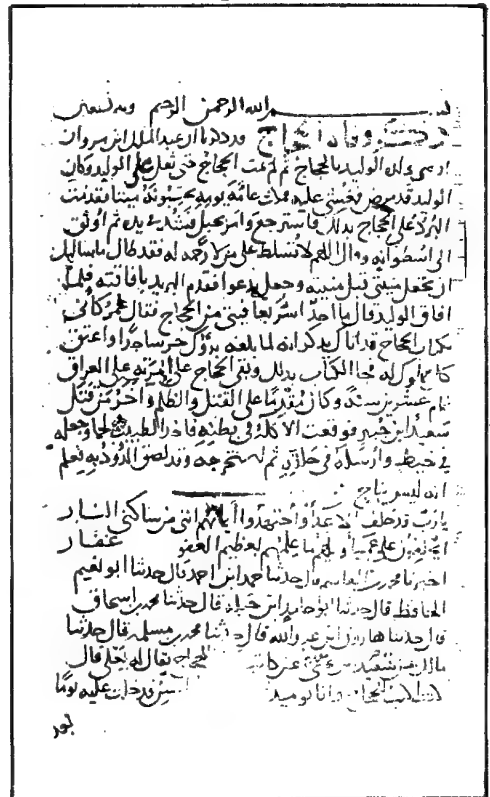 بسم الله الرحمن الرحيم وبه نستعين
ذكر وفاة الحجاج قد ذكرنا ان عبد الملك ابن مروان
اوصى ولده الوليد بالحجاج ثم لم يمت الحجاج حتى ثقل على الوليد وكان
الوليد قد مرض فغشي عليه فمكث عامة يومه يحسبونه ميتا فقدمت
البرد على الحجاج بذلك فاسترجع وامر بحبل فشد في يده ثم اوثق
الى اسطوانة وقال اللهم لا تسلط على من لا رحمة له فقد طال ما سالتك
ان تجعل منيتي قبل منيته وجعل يدعوا فقدم البريد بافاقته فلما
افاق الوليد قال ما احد اسر بعافيتي من الحجاج فقال عمر كأني
بكتاب الحجاج قد اتاك يذكر انه لما بلغه برؤك خر ساجدا واعتق
كل مملوك له فجا الكتاب بذلك وبقي الحجاج على امرته على العراق
تمام عشرين سنة وكان مقدما على القتل والظلم واخر من قتل
سعيد ابن جبير فوقعت الاكلة في بطنه فاخذ الطبيب لحما وجعله
في خيط وارسله في حلقه ثم استخرجه وقد لصق الدود به فعلم
انه ليس بناج
يا رب قد حلف الاعداء واجتهدوا ايمانهم انني من ساكني النار
ايحلفون على عمياء ويحهم ما علمهم بعظيم العفو غفار
اخبرنا محمد بن القاسم قال حدثنا حمد ابن احمد قال حدثنا ابو نعيم
الحافظ قال حدثنا ابو حامد ابن جبلة قال حدثنا محمد بن اسحاق
قال حدثنا هارون ابن عبد الله قال حدثنا محمد بن مسلمة قال حدثنا
مالك سعيد عن كاتب الحجاج يقال له يعلى قال
كنت اكتب للحجاج وانا يوميذ السن فدخلت عليه يوما
بعد